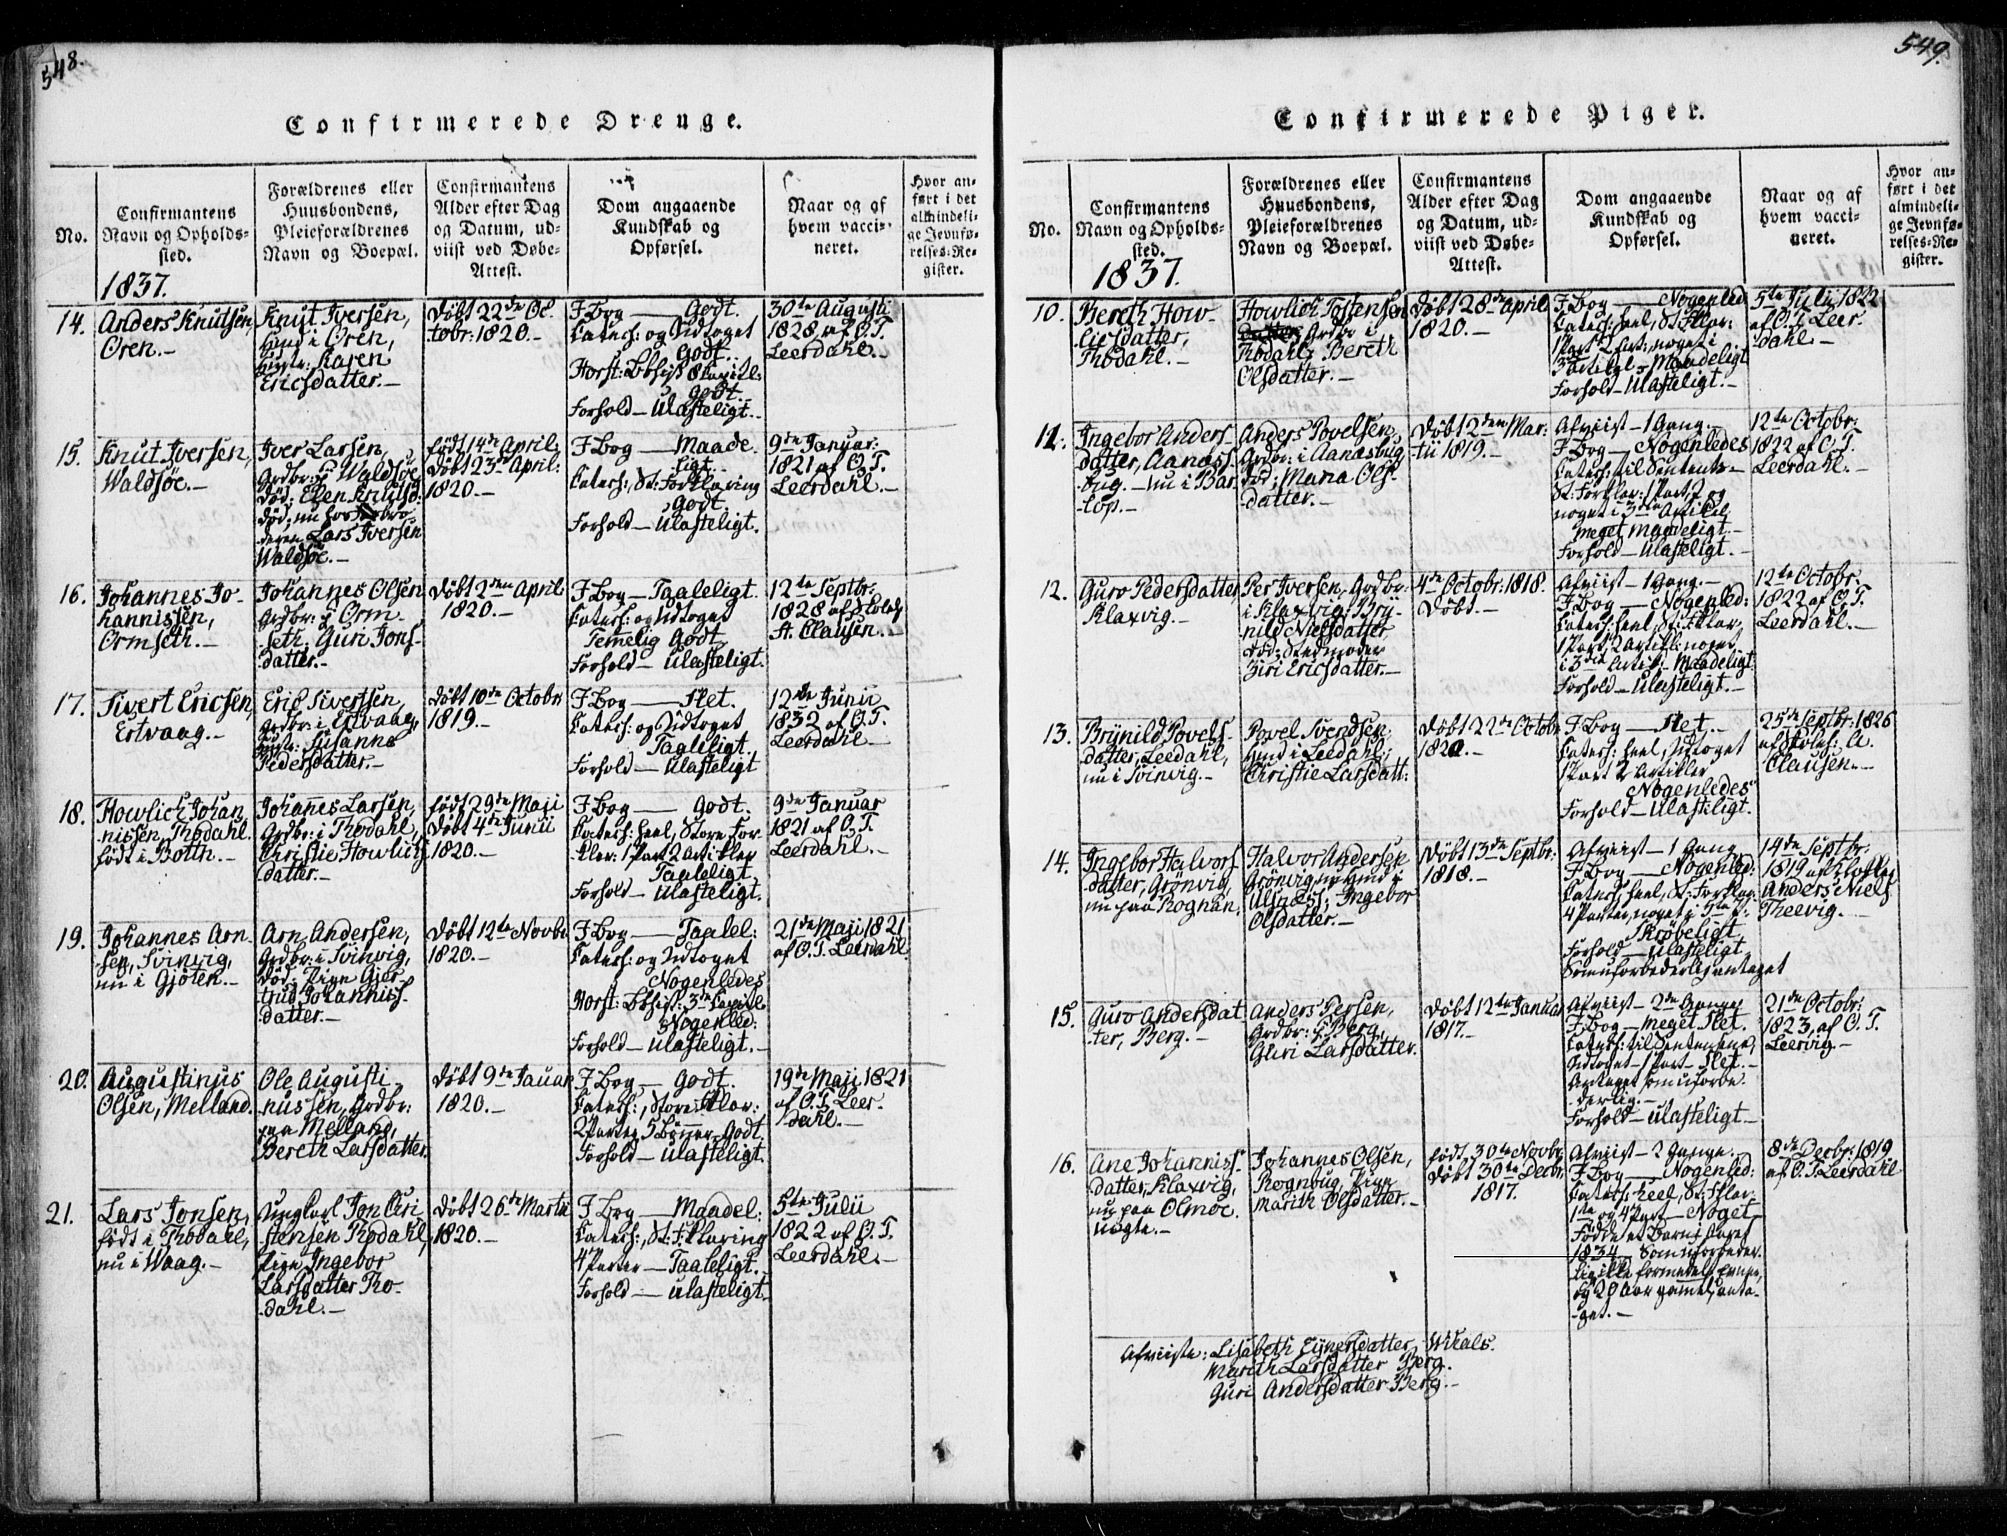 548.
Confirmerede Drenge.
No.
Confirmantens
Navn og Opholds-
sted.
1837.
Forældrenes eller
Huusbondens,
Pleieforældrenes
Navn og Boepæl.
Confirmantens
Alder efter Dag
og Datum, ud-
viist ved Døbe-
Attest.
Dom angaaende
Kundskab og
Opførsel.
Naar og af
hvem vacci-
neret.
Hvor an-
ført i det
almindeli-
ge Jevnfø-
relses-Re-
gister.
14.
Anders Knutsen,
Oren.-
Knut Iversen,
Huusmd i Oren,
Karen
Ericsdatter.-
Døbt 22de Oc-
tobr: 1820.-
F Bog — Godt.
Catech: og Udtoget
Godt.
8 Capitl:
Godt.
Forhold — Ulasteligt.
30te Augusti
1828 af O. T.
Leerdahl.-
15.
Knut Iversen,
Waldsøe.-
Iver Larsen,
Grdbr: i Waldsøe
Død; Ellen Knutsd:
død; nu hos bro-
deren Lars Iversen
Waldsøe.-
født 14de April
Døbt 23de April:
1820.-
F Bog — Maade-
ligt.
Catech:, St: Forklaring
Godt.
Forhold — Ulasteligt.
9de Januar:
1821 af O. T.
Leerdahl.-
16.
Johannes Jo-
hannissen,
Ormseth.-
Johannes Olsen
Grdbr: i Orm-
seth, Guri Jons-
datter.-
Døbt 2den April
1820.-
F Bog — Taaleligt.
Catech: og Udtoget
Temmelig Godt
Forhold — Ulasteligt.
12te Septbr:
1828 af Skoleh:
A. Clausen.-
17.
Sivert Ericsen,
Ertvaag.-
Eric Sivertsen,
Grdbr: i Ertvaag,
Susanna
Pedersdatter.-
Døbt 10de Octobr:
1819.-
F Bog — Slet.
Catech: og Udtoget
Taaleligt
Forhold — Ulasteligt
12de Junii
1832 af O. T.
Leerdahl.-
18.
Howlich Johan-
nissen, Thodahl.
født i Botth.-
Johannes Larsen
Grdbr: i Thodahl,
Christie Howlichs
datter.-
født 29de Maji
Døbt 4de Junii
1820.-
F Bog — Godt.
Catech: heel, Store For-
klar: 1 Part 2 Artikler
Taaleligt.
Forhold — Ulasteligt.
9de Januar
1821 af O. T.
Leerdahl.-
19.
Johannes Arn-
sen, Svinvig,
nu i Gjøten.-
Arn Andersen,
Grdbr: i Svinvig,
Død; Pigen Gjer-
trud Johannis-
datter.-
Døbt 12te Novbr:
1820.-
F Bog — Taalel:
Catech: og Udtoget
Nogenledes
3de Capitel
Nogenled:
Forhold — Ulasteligt.-
21de Maji 1821
af O. T. Leerdahl.
20.
Augustinus
Olsen, Melland.
Ole Augusti-
nussen, Grdbr:
paa Melland,
Bereth Larsdatter.
Døbt 9de Januar
1820.-
F Bog — Godt.
Catech:, Store Forklar:
2 Parter, 5 Bønner. Godt.
Forhold — Ulasteligt.
19de Maji 1821
af O. T. Leer-
dahl.-
21.
Lars Jonsen,
født i Thodahl,
nu i Waag.-
Ungkarl Jon Chri-
stensen Thodahl,
Pigen Ingebor
Larsdatter Tho-
dahl.-
Døbt 26de Martii
1820.-
F Bog — Maadel:
Catech:, St: F. klaring
4 Parter — Taaleligt.-
Forhold — Ulasteligt.
5te Julii
1822 af O. T.
Leerdahl.-
549.
Confirmerede Piger.
No.
Confirmantens
Navn og Opholds-
sted.
1837.
Forældrenes eller
Huusbondens,
Pleieforældrenes
Navn og Boepæl.
Confirmantens
Alder efter Dag
og Datum, ud-
viist ved Døbe-
Attest.
Dom angaaende
Kundskab og
Opførsel.
Naar og af
hvem vacci-
neret.
Hvor an-
ført i det
almindeli-
ge Jevnfø-
relses-Re-
gister.
10.
Bereth How-
licsdatter,
Thodahl.-
Howlich Tostensen
Grdbr: i
Thodahl; Bereth
Olsdatter.-
Døbt 28de April
1820.-
F Bog — Nogenled:
Catech: heel, St: Fklar:
1 Part 2 Art:, noget i
3 Artikel, Maadeligt
Forhold — Ulasteligt.-
5te Julii 1822
af O. T. Leer-
dahl.-
11.
Ingebor Anders-
datter, Aanæss-
bug.- nu i Bar-
top.-
Anders Povelsen,
Grdbr: i Aanæsbug
død; Maria Ols-
datter.-
Døbt 2den Mar-
tii 1819.-
Afviist — 1 Gang.-
F Bog — Nogenledes
Catech: til Sentents-
St: Forklar: 1 Part, 2 og
noget i 3die Artikel
meget maadeligt.-
Forhold — Ulasteligt.-
12te Octobr:
1822 af O. T.
Leerdahl.-
12.
Guro Pedersdatter
Klaxvig.-
Per Iversen, Grdbr:
i Klaxvig; Bry-
nild Nielsdatter
død; Stedmoder
Ziri Ericsdatter.-
4de Octobr: 1818.
Døbt.-
Afviist — 1 Gang.-
F Bog — Nogenled:
Catech: heel, St: Fklar:
1 Part, 2 Artikl: noget
i 3die Artik: Maadeligt
Forhold — Ulasteligt.-
12te Octobr:
1822 af O. T.
Leerdahl.-
13.
Brynild Povels-
datter, Leedahl,
nu i Svinvig.-
Povel Svendsen
Huusmd i Leedahl;
Christie Larsdatt:
Døbt 22de Octobr:
1820.-
F Bog — Slet.-
Catech: heel, Udtoget
1 Part 2 Artikler
Nogenledes
Forhold — Ulasteligt.
25de Septbr: 1826
af Skoleh: A.
Clausen.-
14.
Ingebor Halvors-
datter, Grønvig,
nu paa Rognan.
Halvor Andersen
Grønvig,
Ulsnæss; Ingebor
Olsdatter.-
Døbt 13de Septbr:
1818.-
Afviist — 1 Gang
F Bog — Nogenled:
Catech: heel, St: Forklar:
4 Parter, noget i 5te P:
Skrøbeligt
Forhold — Ulasteligt
Som uforbederlig antaget
14de Septbr:
1819 af
Anders Niels
Theevig.-
15.
Guro Andersdat-
ter, Berg.-
Anders Persen,
Grdbr: i Berg,
Guri Larsdatter.
Døbt 12te Januar
1817.-
Afviist — 2de Gange
F Bog — meget Slet.
Catech: til Sententsene,
Udtoget — 1 Part — Slet.-
Antaget som uforbe-
derlig.-
Forhold — Ulasteligt.-
21de Octobr:
1823, af O. T.
Leervig.-
16.
Ane Johannis-
datter, Klaxvig,
nu paa Olmoe
Uægte.-
Johannes Olsen,
Rognbug, Pigen
Marith Olsdatter.-
født 30te Novbr:
Døbt 30te Decbr:
1817.
Afviist — 2 Gange.-
F Bog — Nogenled:
Catech: heel, St: Fklar:
1ste og 4 Part — Noget
Fødde et Barn i Horet
1834 — Som uforbeder-
lig
og 20 Aar gamel, anta-
get.-
8de Decbr: 1819
af O. T. Leerdahl
Afviiste: Lisabeth Ejnersdatter, Wikals.
Marith Larsdatter Berg.
Guri Andersdatter Berg.-